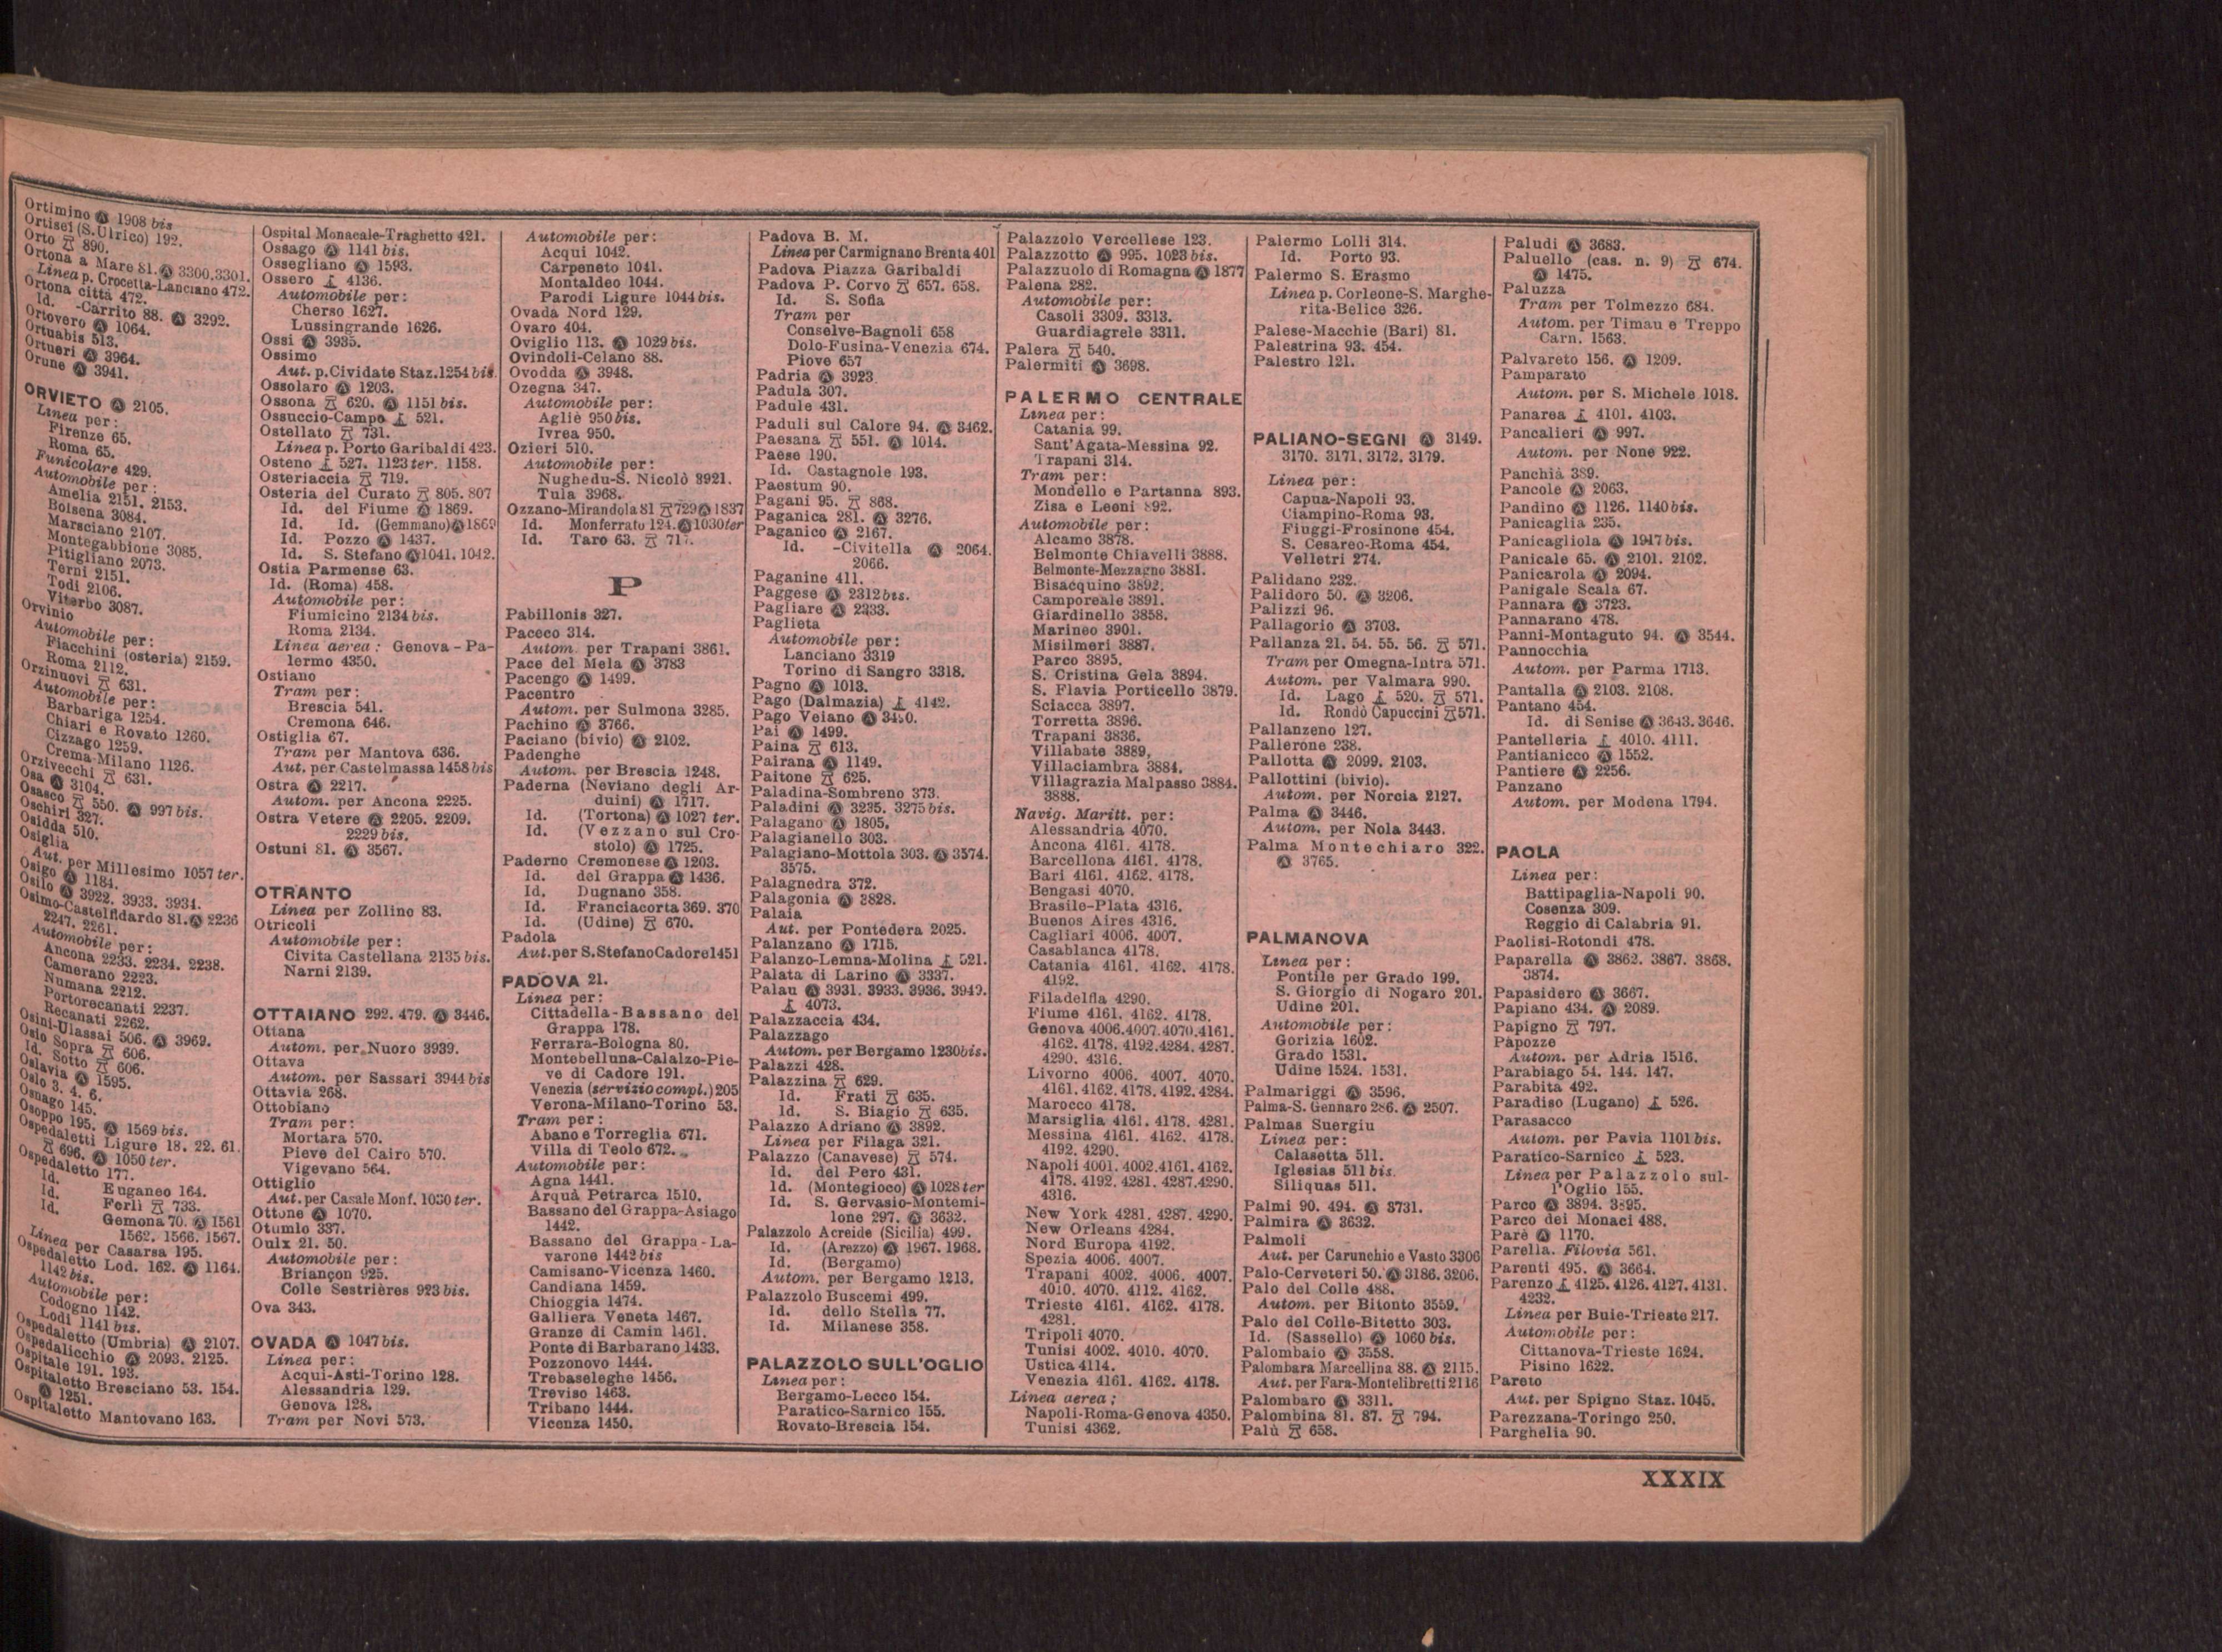 Ortimino Ⓐ 1908 bis
Ortisei (S. Ulrico) 192.
Orto 890.
Ortona a Mare 81. Ⓐ 3300.3301.
Linea p. Crocetta-Lanciano 472.
Ortona città 472.
Id. -Carrito 88. Ⓐ 3292.
Ortovero Ⓐ 1064.
Ortuabis 513.
Ortueri Ⓐ 3964.
Orune Ⓐ 3941.
ORVIETO Ⓐ 2105.
Linea per:
Firenze 65.
Roma 65.
Funicolare 429.
Automobile per:
Amelia 2151. 2153.
Bolsena 3084.
Marsciano 2107.
Montegabbione 3085.
Pitigliano 2073.
Terni 2151.
Todi 2106.
Viterbo 3087.
Orvinio
Automobile per:
Fiacchini (osteria) 2159.
Roma 2112.
Orzinuovi 631.
Automobile per:
Barbariga 1254.
Chiari e Rovato 1260.
Cizzago 1259.
Crema-Milano 1126.
Orzivecchi 631.
Osa Ⓐ 3104.
Osasco 550. Ⓐ 997 bis.
Oschiri 327.
Osidda 510.
Osiglia
Aut. per Millesimo 1057 ter.
Osigo Ⓐ 1184.
Osilo Ⓐ 3922. 3933. 3934.
Osimo-Castelfidardo 81. Ⓐ 2236
2247. 2261.
Automobile per:
Ancona 2233. 2234. 2238.
Camerano 2223.
Numana 2212.
Portorecanati 2237.
Recanati 2262.
Osini-Ulassai 506. Ⓐ 3969.
Osio Sopra 606.
Id. Sotto 606.
Oslavia Ⓐ 1595.
Oslo 3. 4. 6.
Osnago 145.
Osoppo 195. Ⓐ 1569 bis.
Ospedaletti Ligure 18. 22. 61.
696. Ⓐ 1050 ter.
Ospedaletto 177.
Id. Euganeo 164.
Id. Forlì 733.
Id. Gemona 70. Ⓐ 1561
1562. 1566. 1567.
Linea per Casarsa 195.
Ospedaletto Lod. 162. Ⓐ 1164.
1142 bis.
Automobile per:
Codogno 1142.
Lodi 1141 bis.
Ospedaletto (Umbria) Ⓐ 2107.
Ospedalicchio Ⓐ 2093. 2125.
Ospitale 191. 193.
Ospitaletto Bresciano 53. 154.
Ⓐ 1251.
Ospitaletto Mantovano 163.
Ospital Monacale-Traghetto 421.
Ossago Ⓐ 1141 bis.
Ossegliano Ⓐ 1593.
Ossero 4136.
Automobile per:
Cherso 1627.
Lussingrande 1626.
Ossi Ⓐ 3935.
Ossimo
Aut. p. Cividate Staz. 1254 bis.
Ossolaro Ⓐ 1203.
Ossona 620. Ⓐ 1151 bis.
Ossuccio-Campo 521.
Ostellato 731.
Linea p. Porto Garibaldi 423.
Osteno 527. 1123 ter. 1158.
Osteriaccia 719.
Osteria del Curato 805. 807
Id. del Fiume Ⓐ 1869.
Id. Id. (Gemmano) Ⓐ 1869
Id. Pozzo Ⓐ 1437.
Id. S. Stefano Ⓐ 1041. 1042.
Ostia Parmense 63.
Id. (Roma) 458.
Automobile per:
Fiumicino 2134 bis.
Roma 2134.
Linea aerea: Genova - Pa-
lermo 4350.
Ostiano
Tram per:
Brescia 541.
Cremona 646.
Ostiglia 67.
Tram per Mantova 636.
Aut. per Castelmassa 1458 bis
Ostra Ⓐ 2217.
Autom. per Ancona 2225.
Ostra Vetere Ⓐ 2205. 2209.
2229 bis.
Ostuni 81. Ⓐ 3567.
OTRANTO
Linea per Zollino 83.
Otricoli
Automobile per:
Civita Castellana 2135 bis.
Narni 2139.
OTTAIANO 292. 479. Ⓐ 3446.
Ottana
Autom. per Nuoro 3939.
Ottava
Autom. per Sassari 3944 bis
Ottavia 268.
Ottobiano
Tram per:
Mortara 570.
Pieve del Cairo 570.
Vigevano 564.
Ottiglio
Aut. per Casale Monf. 1030 ter.
Ottone Ⓐ 1070.
Otumlo 337.
Oulx 21. 50.
Automobile per:
Briançon 925.
Colle Sestrières 923 bis.
Ova 343.
OVADA Ⓐ 1047 bis.
Linea per:
Acqui-Asti-Torino 128.
Alessandria 129.
Genova 128.
Tram per Novi 573.
Automobile per:
Acqui 1042.
Carpeneto 1041.
Montaldeo 1044.
Parodi Ligure 1044 bis.
Ovada Nord 129.
Ovaro 404.
Oviglio 113. Ⓐ 1029 bis.
Ovindoli-Celano 88.
Ovodda Ⓐ 3948.
Ozegna 347.
Automobile per:
Agliè 950 bis.
Ivrea 950.
Ozieri 510.
Automobile per:
Nughedu-S. Nicolò 3921.
Tula 3968.
Ozzano-Mirandola 81 729 Ⓐ 1837
Id. Monferrato 124. Ⓐ 1030 ter
Id. Taro 63.
P
Pabillonis 327.
Paceco 314.
Autom. per Trapani 3861.
Pace del Mela Ⓐ 3783
Pacengo Ⓐ 1499.
Pacentro
Autom. per Sulmona 3285.
Pachino Ⓐ 3766.
Paciano (bivio) Ⓐ 2102.
Padenghe
Autom. per Brescia 1248.
Paderna (Neviano degli Ar-
duini) Ⓐ 1717.
Id. (Tortona) Ⓐ 1027 ter.
Id. (Vezzano sul Cro-
stolo) Ⓐ 1725.
Paderno Cremonese Ⓐ 1203.
Id. del Grappa Ⓐ 1436.
Id. Dugnano 358.
Id. Franciacorta 369. 370
Id. (Udine) 670.
Padola
Aut. per S. Stefano Cadore 1451
PADOVA 21.
Linea per:
Cittadella-Bassano del
Grappa 178.
Ferrara-Bologna 80.
Montebelluna-Calalzo-Pie-
ve di Cadore 191.
Venezia (servizio compl.) 205
Verona-Milano-Torino 53.
Tram per:
Abano e Torreglia 671.
Villa di Teolo 672.
Automobile per:
Agna 1441.
Arquà Petrarca 1510.
Bassano del Grappa-Asiago
1442.
Bassano del Grappa - La-
varone 1442 bis
Camisano-Vicenza 1460.
Candiana 1459.
Chioggia 1474.
Galliera Veneta 1467.
Granze di Camin 1461.
Ponte di Barbarano 1433.
Pozzonovo 1444.
Trebaseleghe 1456.
Treviso 1463.
Tribano 1444.
Vicenza 1450.
Padova B. M.
Linea per Carmignano Brenta 401
Padova Piazza Garibaldi
Padova P. Corvo 657. 658.
Id. S. Sofia
Tram per
Conselve-Bagnoli 658
Dolo-Fusina-Venezia 674.
Piove 657
Padria Ⓐ 3923.
Padula 307.
Padule 431.
Paduli sul Calore 94. Ⓐ 3462.
Paesana 551. Ⓐ 1014.
Paese 190.
Id. Castagnole 193.
Paestum 90.
Pagani 95. 868.
Paganica 281. Ⓐ 3276.
Paganico Ⓐ 2167.
Id. -Civitella Ⓐ 2064.
2066.
Paganine 411.
Paggese Ⓐ 2312 bis.
Pagliare Ⓐ 2333.
Paglieta
Automobile per:
Lanciano 3319
Torino di Sangro 3318.
Pagno Ⓐ 1013.
Pago (Dalmazia) 4142.
Pago Veiano Ⓐ
Pai Ⓐ 1499.
Paina 613.
Pairana Ⓐ 1149.
Paitone 625.
Paladina-Sombreno 373.
Paladini Ⓐ 3235. 3275 bis.
Palagano Ⓐ 1805.
Palagianello 303.
Palagiano-Mottola 303. Ⓐ 3574.
3575.
Palagnedra 372.
Palagonia Ⓐ 3828.
Palaia
Aut. per Pontedera 2025.
Palanzano Ⓐ 1715.
Palanzo-Lemna-Molina 521.
Palata di Larino Ⓐ 3337.
Palau Ⓐ 3931. 3933. 3936. 3949.
4073.
Palazzaccia 434.
Palazzago
Autom. per Bergamo 1230 bis.
Palazzi 428.
Palazzina 629.
Id. Frati 635.
Id. S. Biagio 635.
Palazzo Adriano Ⓐ 3892.
Linea per Filaga 321.
Palazzo (Canavese) 574.
Id. del Pero 431.
Id. (Montegioco) Ⓐ 1028 ter
Id. S. Gervasio-Montemi-
lone 297. Ⓐ 3632.
Palazzolo Acreide (Sicilia) 499.
Id. (Arezzo) Ⓐ 1967. 1968.
Id. (Bergamo)
Autom. per Bergamo 1213.
Palazzolo Buscemi 499.
Id. dello Stella 77.
Id. Milanese 358.
PALAZZOLO SULL'OGLIO
Linea per:
Bergamo-Lecco 154.
Paratico-Sarnico 155.
Rovato-Brescia 154.
Palazzolo Vercellese 123.
Palazzotto Ⓐ 995. 1023 bis.
Palazzuolo di Romagna Ⓐ 1877
Palena 282.
Automobile per:
Casoli 3309. 3313.
Guardiagrele 3311.
Palera 540.
Palermiti Ⓐ 3698.
PALERMO CENTRALE
Linea per:
Catania 99.
Sant'Agata-Messina 92.
Trapani 314.
Tram per:
Mondello e Partanna 893.
Zisa e Leoni 892.
Automobile per:
Alcamo 3878.
Belmonte Chiavelli 3888.
Belmonte-Mezzagno 3881.
Bisacquino 3892.
Camporeale 3891.
Giardinello 3858.
Marineo 3901.
Misilmeri 3887.
Parco 3895.
S. Cristina Gela 3894.
S. Flavia Porticello 3879.
Sciacca 3897.
Torretta 3896.
Trapani 3836.
Villabate 3889.
Villaciambra 3884.
Villagrazia Malpasso 3884.
3888.
Navig. Maritt. per:
Alessandria 4070.
Ancona 4161. 4178.
Barcellona 4161. 4178.
Bari 4161. 4162. 4178.
Bengasi 4070.
Brasile-Plata 4316.
Buenos Aires 4316.
Cagliari 4006. 4007.
Casablanca 4178.
Catania 4161. 4162. 4178.
4192.
Filadelfia 4290.
Fiume 4161. 4162. 4178.
Genova 4006.4007.4070.4161.
4162. 4178. 4192.4284. 4287.
4290. 4316.
Livorno 4006. 4007. 4070.
4161.4162. 4178.4192.4284.
Marocco 4178.
Marsiglia 4161. 4178. 4281.
Messina 4161. 4162. 4178.
4192. 4290.
Napoli 4001. 4002.4161. 4162.
4178. 4192. 4281. 4287.4290.
4316.
New York 4281. 4287. 4290.
New Orleans 4284.
Nord Europa 4192.
Spezia 4006. 4007.
Trapani 4002. 4006. 4007.
4010. 4070. 4112. 4162.
Trieste 4161. 4162. 4178.
4281.
Tripoli 4070.
Tunisi 4002. 4010. 4070.
Ustica 4114.
Venezia 4161. 4162. 4178.
Linea aerea:
Napoli-Roma-Genova 4350.
Tunisi 4362.
Palermo Lolli 314.
Id. Porto 93.
Palermo S. Erasmo
Linea p. Corleone-S. Marghe-
rita-Belice 326.
Palese-Macchie (Bari) 81.
Palestrina 93. 454.
Palestro 121.
PALIANO-SEGNI Ⓐ 3149.
3170. 3171. 3172. 3179.
Linea per:
Capua-Napoli 93.
Ciampino-Roma 93.
Fiuggi-Frosinone 454.
S. Cesareo-Roma 454.
Velletri 274.
Palidano 232.
Palidoro 50. Ⓐ 3206.
Palizzi 96.
Pallagorio Ⓐ 3703.
Pallanza 21. 54. 55. 56. 571.
Tram per Omegna-Intra 571.
Autom. per Valmara 990.
Id. Lago 520. 571.
Id. Rondò Capuccini 571.
Pallanzeno 127.
Pallerone 238.
Pallotta Ⓐ 2099. 2103.
Pallottini (bivio).
Autom. per Norcia 2127.
Palma Ⓐ 3446.
Autom. per Nola 3443.
Palma Montechiaro 322.
Ⓐ 3765.
PALMANOVA
Linea per:
Pontile per Grado 199.
S. Giorgio di Nogaro 201.
Udine 201.
Automobile per:
Gorizia 1602.
Grado 1531.
Udine 1524. 1531.
Palmariggi Ⓐ 3596.
Palma-S. Gennaro 286. Ⓐ 2507.
Palmas Suergiu
Linea per:
Calasetta 511.
Iglesias 511 bis.
Siliquas 511.
Palmi 90. 494. Ⓐ 3731.
Palmira Ⓐ 3632.
Palmoli
Aut. per Carunchio e Vasto 3306
Palo-Cerveteri 50. Ⓐ 3186. 3206.
Palo del Colle 488.
Autom. per Bitonto 3559.
Palo del Colle-Bitetto 303.
Id. (Sassello) Ⓐ 1060 bis.
Palombaio Ⓐ 3558.
Palombara Marcellina 88. Ⓐ 2115.
Aut. per Fara-Montelibretti 2116
Palombaro Ⓐ 3311.
Palombina 81. 87. 794.
Palù 658.
Paludi Ⓐ 3683.
Paluello (cas. n. 9) 674.
Ⓐ 1475.
Paluzza
Tram per Tolmezzo 684.
Autom. per Timau e Treppo
Carn. 1563.
Palvareto 156. Ⓐ 1209.
Pamparato
Autom. per S. Michele 1018.
Panarea 4101. 4103.
Pancalieri Ⓐ 997.
Autom. per None 922.
Panchià 389.
Pancole Ⓐ 2063.
Pandino Ⓐ 1126. 1140 bis.
Panicaglia 235.
Panicagliola Ⓐ 1947 bis.
Panicale 65. Ⓐ 2101. 2102.
Panicarola Ⓐ 2094.
Panigale Scala 67.
Pannara Ⓐ 3723.
Pannarano 478.
Panni-Montaguto 94. Ⓐ 3544.
Pannocchia
Autom. per Parma 1713.
Pantalla Ⓐ 2103. 2108.
Pantano 454.
Id. di Senise Ⓐ 3643. 3646.
Pantelleria 4010. 4111.
Pantianicco Ⓐ 1552.
Pantiere Ⓐ 2256.
Panzano
Autom. per Modena 1794.
PAOLA
Linea per:
Battipaglia-Napoli 90.
Cosenza 309.
Reggio di Calabria 91.
Paolisi-Rotondi 478.
Paparella Ⓐ 3862. 3867. 3868.
3874.
Papasidero Ⓐ 3667.
Papiano 434. Ⓐ 2089.
Papigno 797.
Papozze
Autom. per Adria 1516.
Parabiago 54. 144. 147.
Parabita 492.
Paradiso (Lugano) 526.
Parasacco
Autom. per Pavia 1101 bis.
Paratico-Sarnico 523.
Linea per Palazzolo sul-
l'Oglio 155.
Parco Ⓐ 3894. 3895.
Parco dei Monaci 488.
Parè Ⓐ 1170.
Parella. Filovia 561.
Parenti 495. Ⓐ 3664.
Parenzo 4125. 4126. 4127. 4131.
4232.
Linea per Buie-Trieste 217.
Automobile per:
Cittanova-Trieste 1624.
Pisino 1622.
Pareto
Aut. per Spigno Staz. 1045.
Parezzana-Toringo 250.
Parghelia 90.
XXXIX